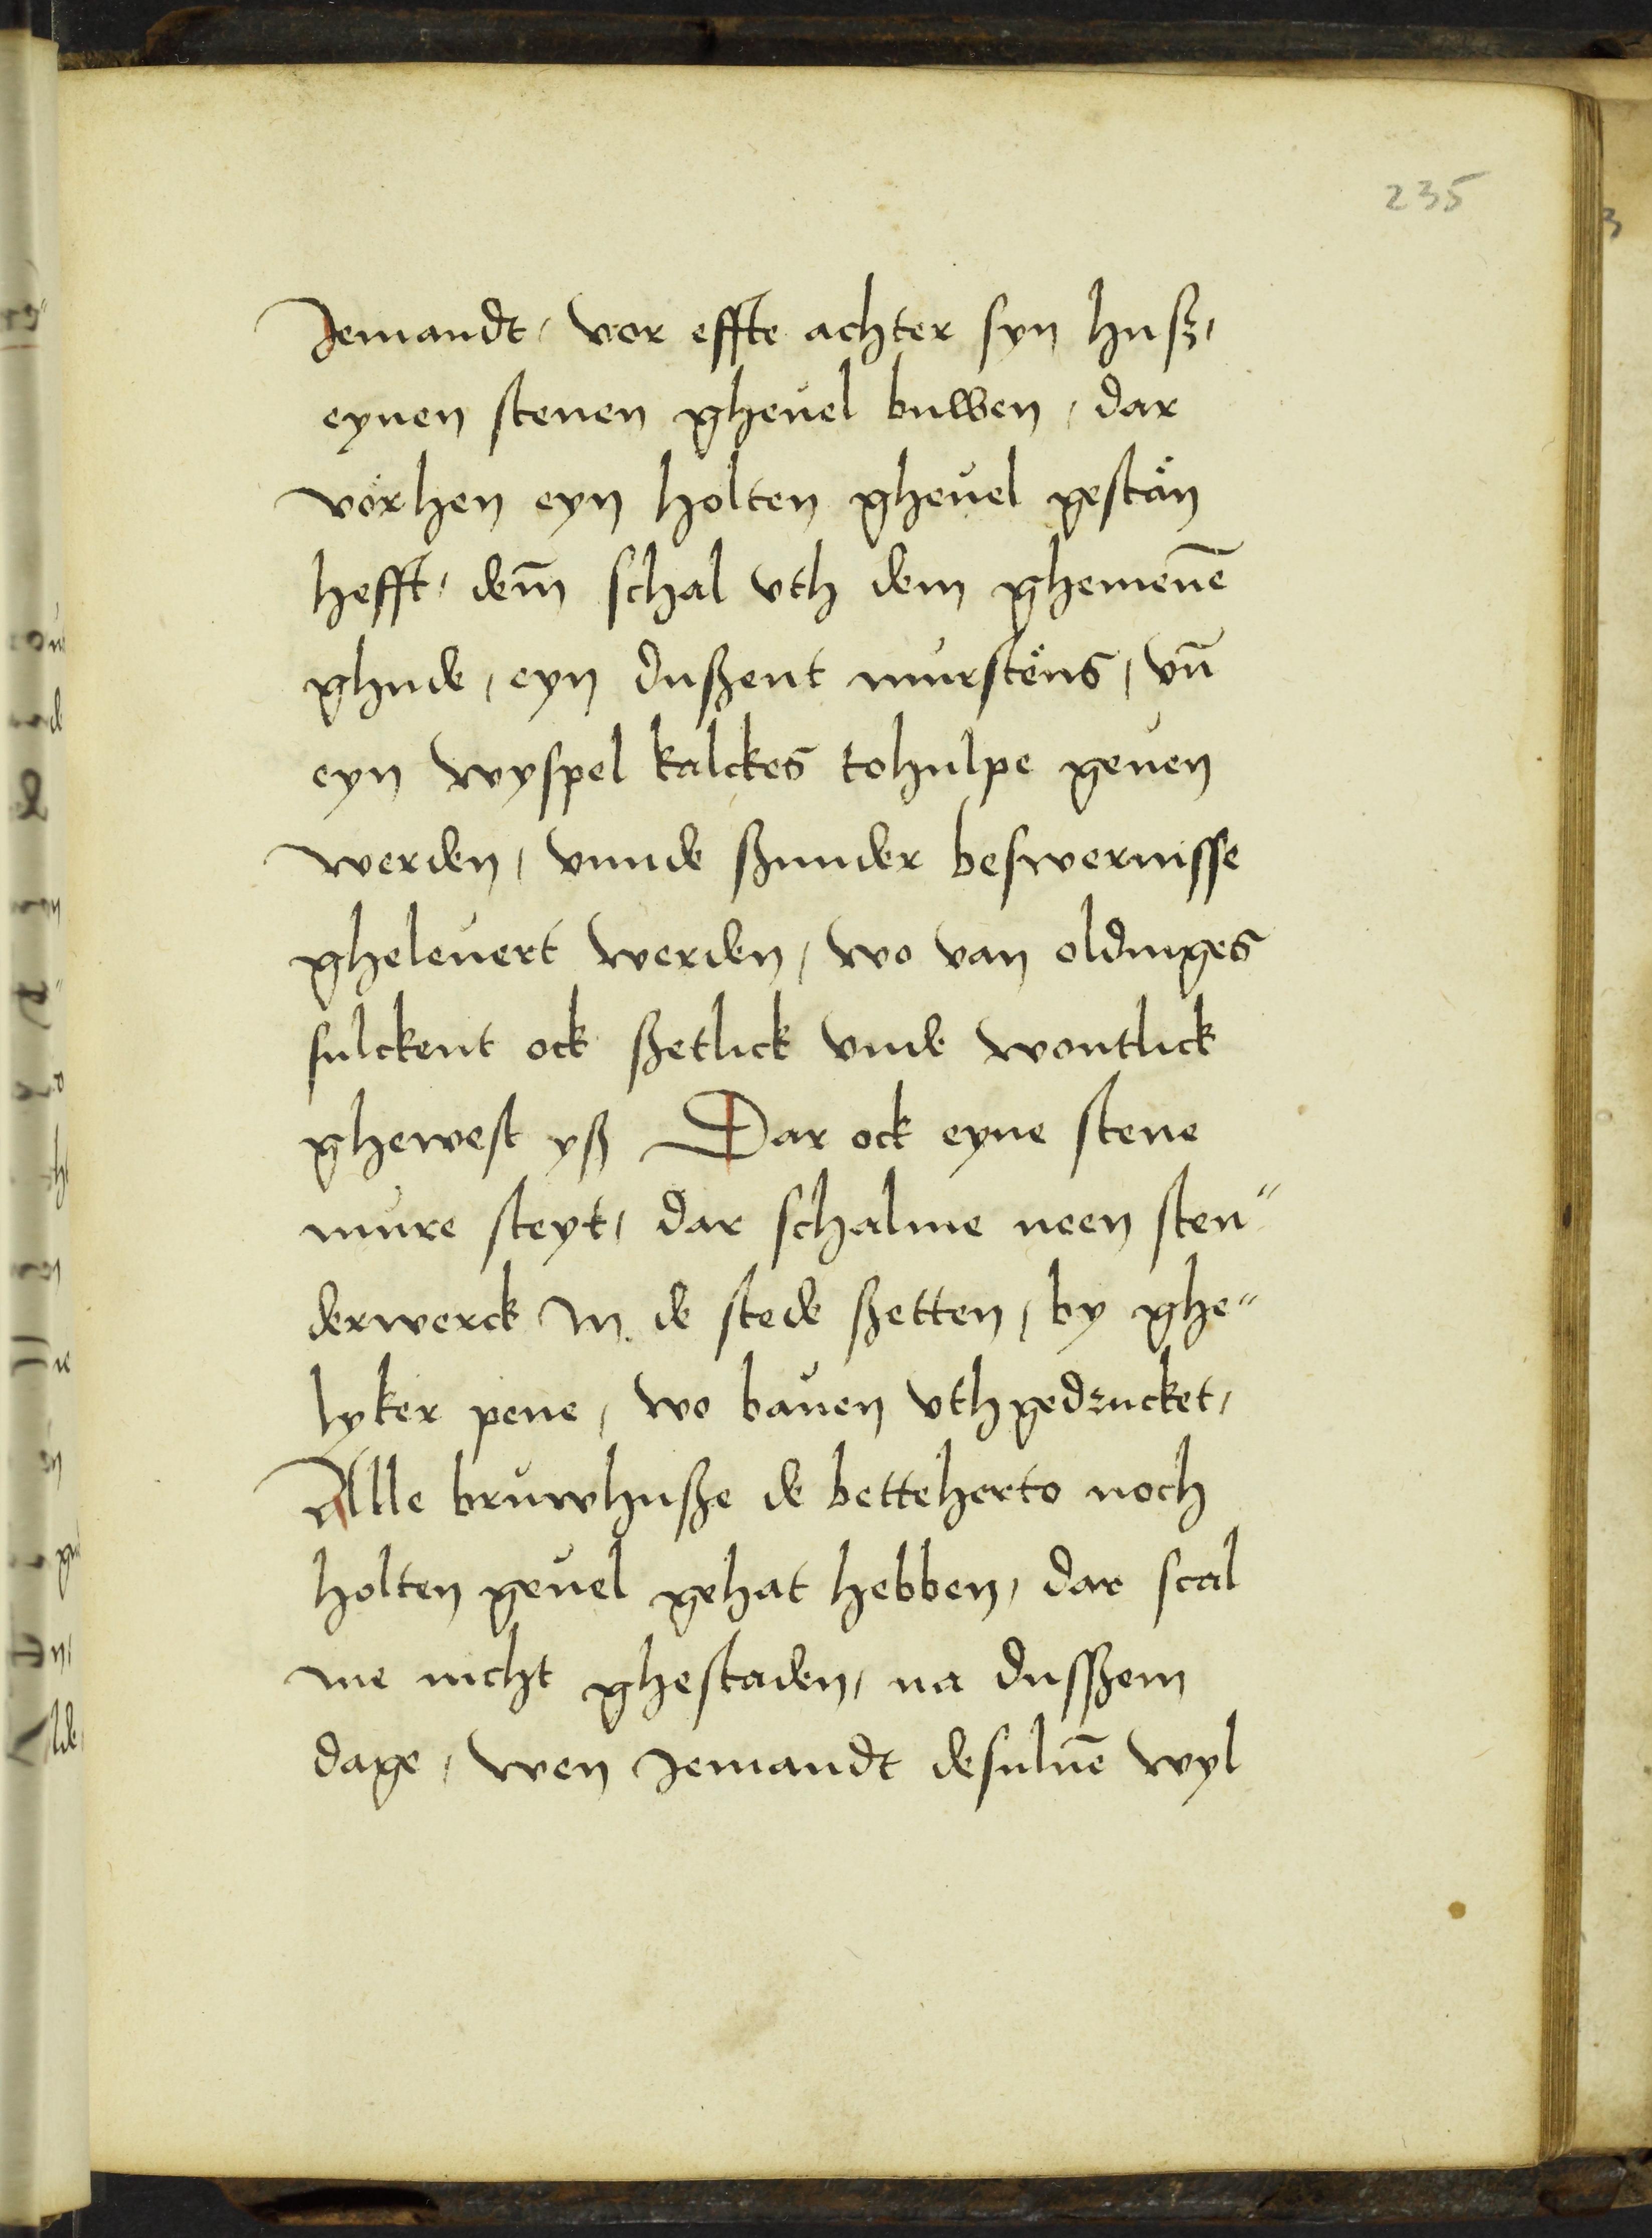 235
Jemandt, vor effte achter syn huß,
eynen stenen gheuel buwen, dar
vörhen eyn holten gheuel gestän
hefft, dem̄ schal vth dem ghemenē
ghude, eyn dußent murstëns, vn̄
eyn wyspel kalckes tohulpe geuen
werden, vnnde ßunder beswernisse
gheleuert werden, wo van oldinges
sulckent ock ßetlick vnde wontlick
ghewest yß Dar ock eyne stene
mure steyt, dar schalme neen sten"
derwerck jn de stede ßetten, by ghe"
lyker pene, wo bauen vthgedrucket,
Alle bruwhuße de betteherto noch
holten geuel gehat hebben, dar scal
me nicht ghestaden, na dussßem
dage, wen Jemandt desuluē wyl